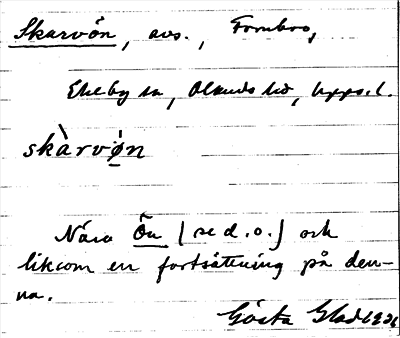 Skarvön, avs., Fornbro,
Ekeby sn, Olands hd, Upps.l.
skàrvø̀n
Nära Ön (se d.o.) och
liksom en fortsättning på den-
na.
Gösta Glad